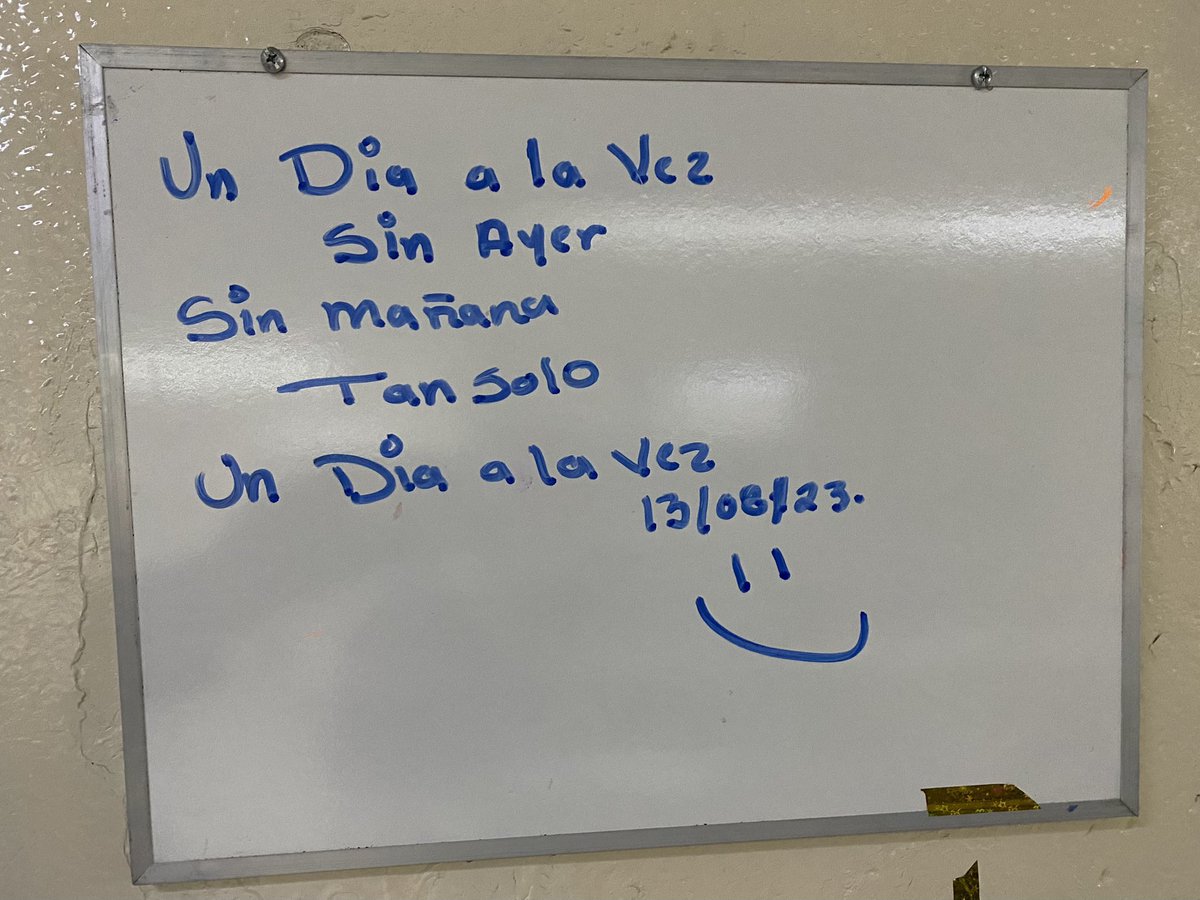 Un Dia a la Vez
Sin Ayer
Sin mañana
Tan solo
Un Dia a la Vez
13/06/23.